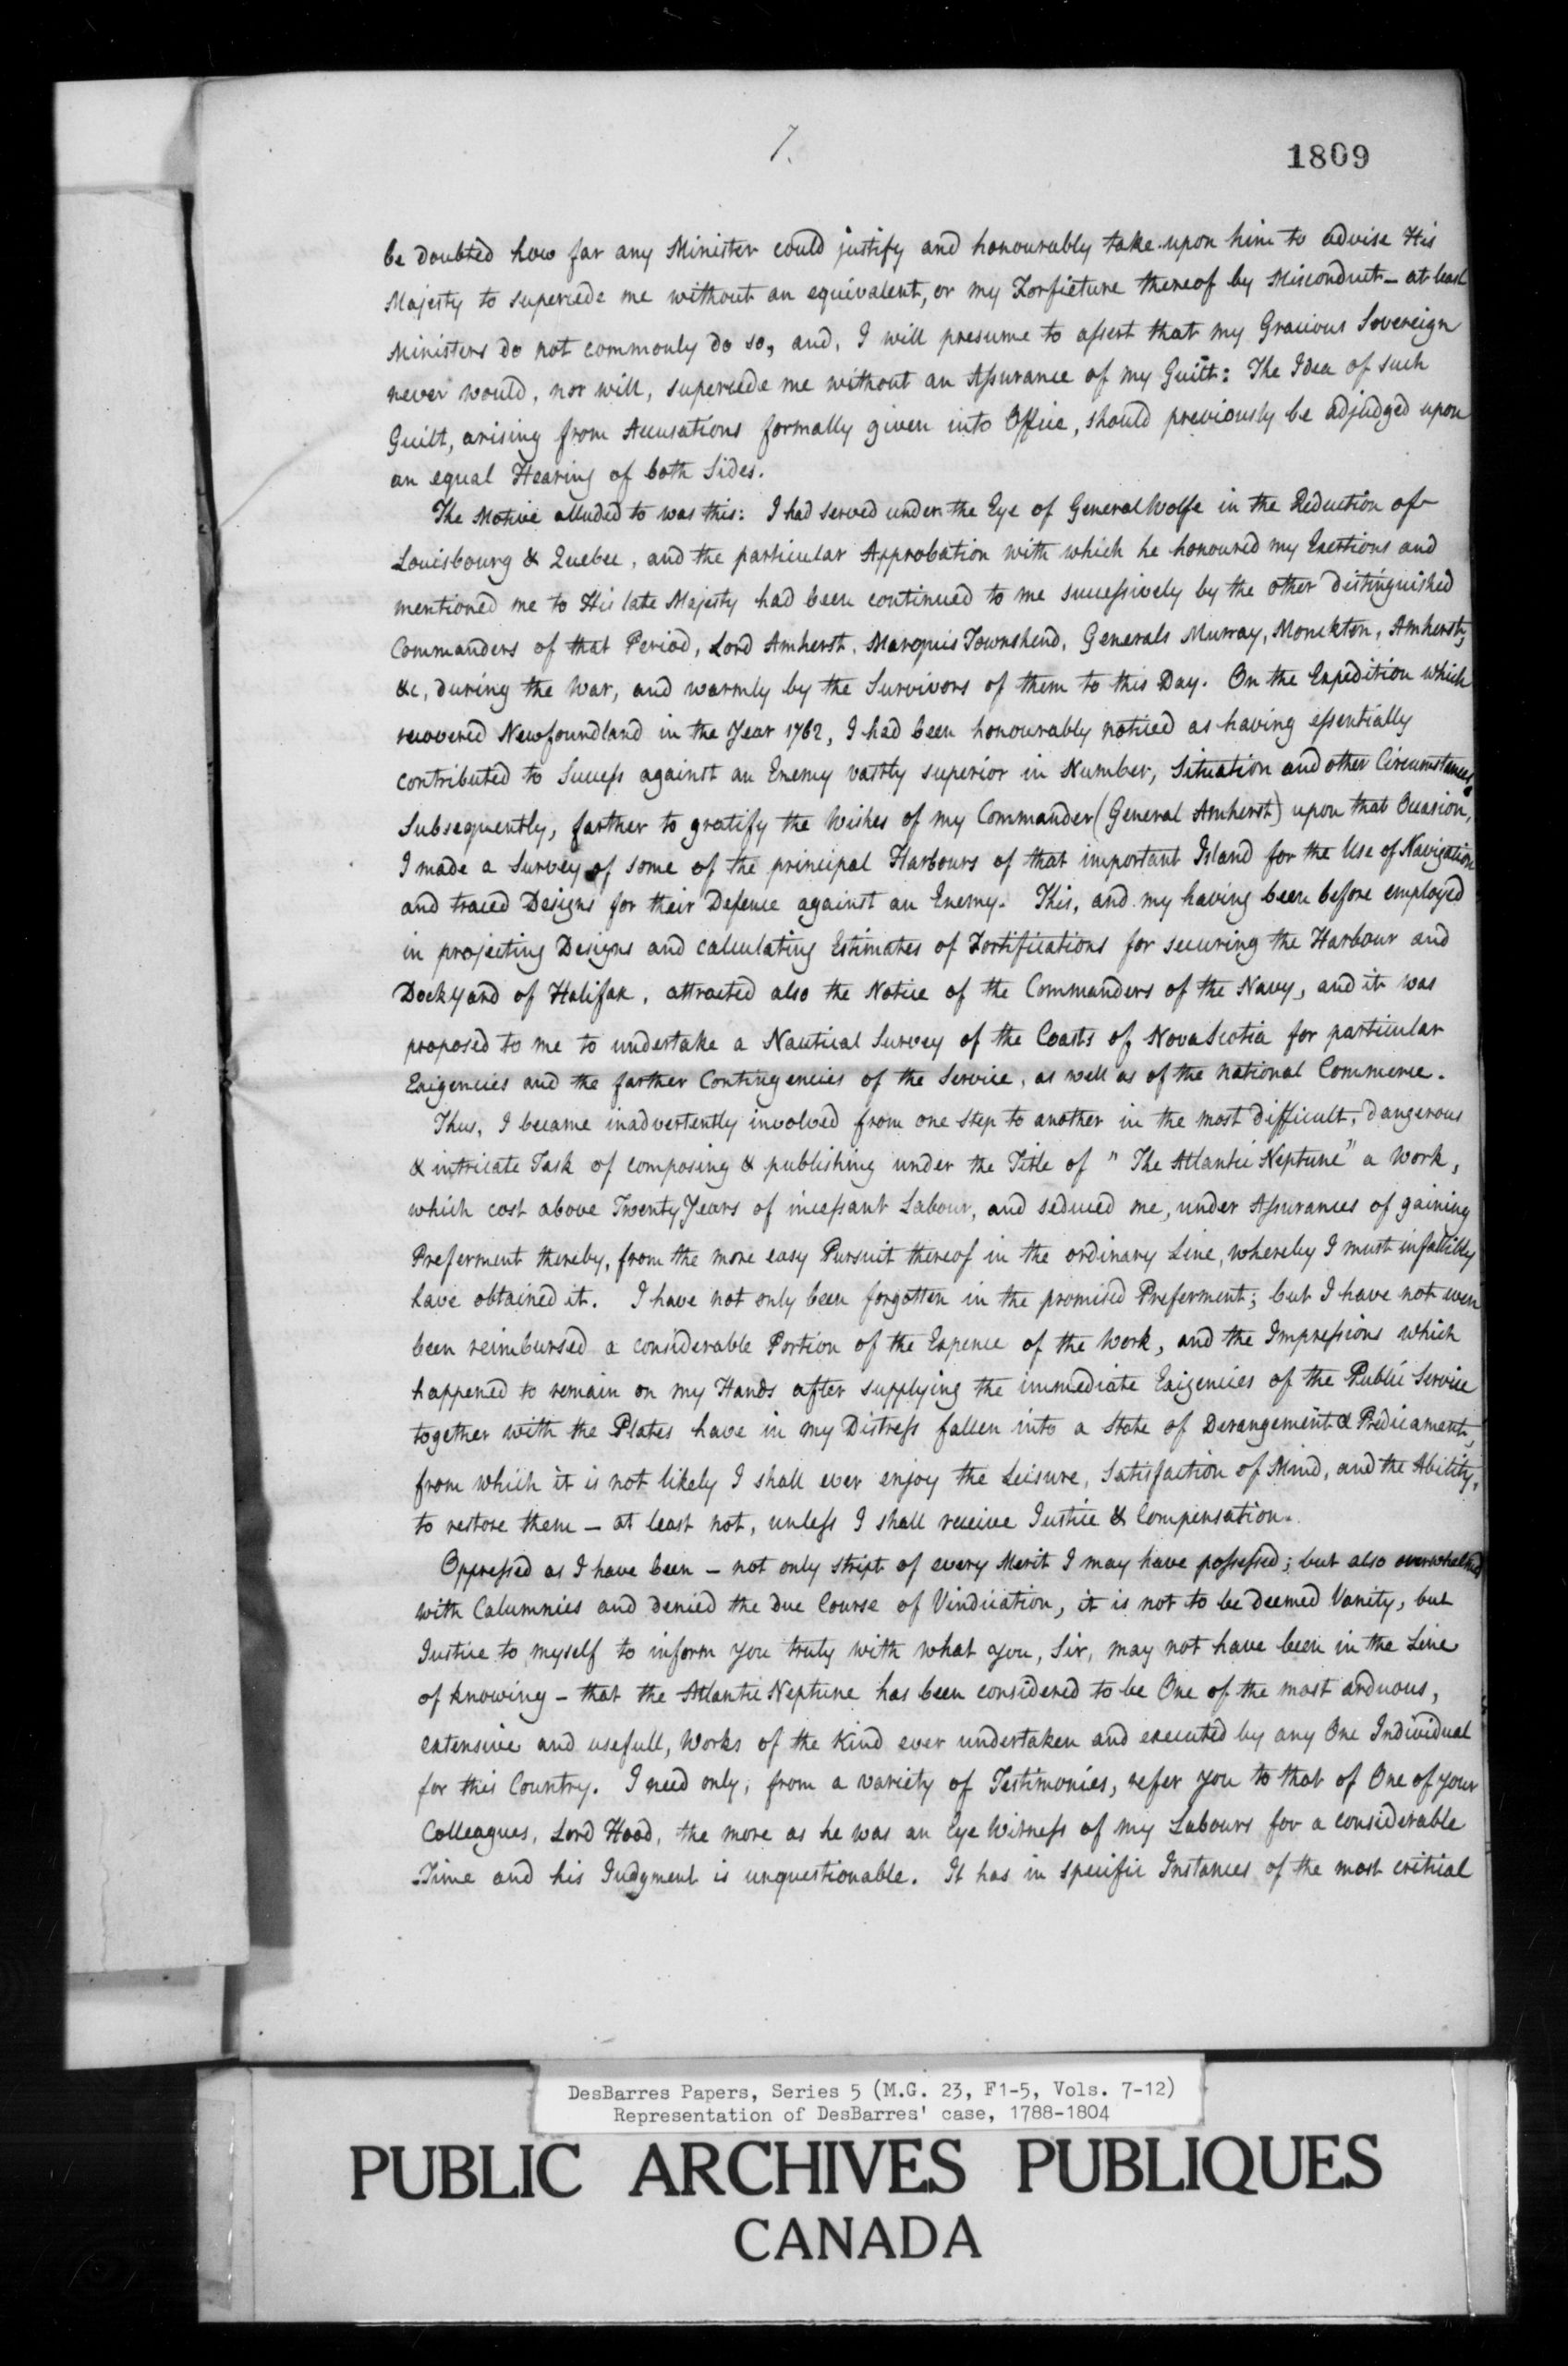 7.
1809
be doubted how far any Minister could justify and honourably take upon him to advise His
Majesty to supercede me without an equivalent, or my Forfieture thereof by Misconduct – at least
Ministers do not commonly do so, and, I will presume to assert that my Gracious Sovereign
never would, nor will, supercede me without an Assurance of my Guilt: The Idea of such
Guilt, arising from Accusations formally given into Office, should previously be adjudged upon
an equal Hearing of both Sides.
The Motive alluded to was this: I had served under the Eye of General Wolfe in the Reduction of
Louisbourg & Quebec, and the particular Approbation with which he honoured my Exertions and
mentioned me to His late Majesty had been continued to me successively by the other distinguished
Commanders of that Period, Lord Amherst, Marquis Townshend, Generals Murray, Monckton, Amherst,
&c, during the War, and warmly by the Survivors of them to this Day. On the Expedition which
recovered Newfoundland in the Year 1762, I had been honourably noticed as having essentially
contributed to Success against an Enemy vastly superior in Number, Situation and other Circumstances.
Subsequently, farther to gratify the Wishes of my Commander (General Amherst) upon that Occasion,
I made a Survey of some of the principal Harbours of that important Island for the Use of Navigation
and traced Designs for their Defence against an Enemy. This, and my having been before employed
in projecting Designs and calculating Estimates of Fortifications for securing the Harbour and
Dockyard of Halifax, attracted also the Notice of the Commanders of the Navy, and it was
proposed to me to undertake a Nautical Survey of the Coasts of Nova Scotia for particular
Exigencies and the farther Contingencies of the Service, as well as of the national Commerce.
Thus, I became inadvertently involved from one step to another in the most difficult, dangerous
& intricate Task of composing & publishing under the Title of "The Atlantic Neptune" a Work,
which cost above Twenty Years of incessant Labour, and seduced me, under Assurances of gaining
Preferment thereby, from the more easy Pursuit thereof in the ordinary Line, whereby I must infallibly
have obtained it. I have not only been forgotten in the promised Preferment; but I have not even
been reimbursed a considerable Portion of the Expence of the Work, and the Impressions which
happened to remain on my Hands after supplying the immediate Exigencies of the Public Service
together with the Plates have in my Distress fallen into a State of Derangement & Predicament,
from which it is not likely I shall ever enjoy the Leisure, Satisfaction of Mind, and the Ability,
to restore them – at least not, unless I shall receive Justice & Compensation.
Oppressed as I have been – not only stript of every Merit I may have possessed; but also overwhelmed
with Calumnies and denied the due Course of Vindication, it is not to be deemed Vanity, but
Justice to myself to inform you truly with what you, Sir, may not have been in the Line
of knowing – that the Atlantic Neptune has been considered to be One of the most arduous,
extensive and usefull, Works of the Kind ever undertaken and executed by any One Individual
for this Country. I need only, from a variety of Testimonies, refer you to that of One of your
Colleagues, Lord Hood, the more as he was an Eye Witness of my Labours for a considerable
Time and his Judgment is unquestionable. It has in specific Instances of the most critical
DesBarres Papers, Series 5 (M.G. 23, F1-5, Vols. 7-12)
Representation of DesBarres' case, 1788-1804
PUBLIC ARCHIVES PUBLIQUES
CANADA